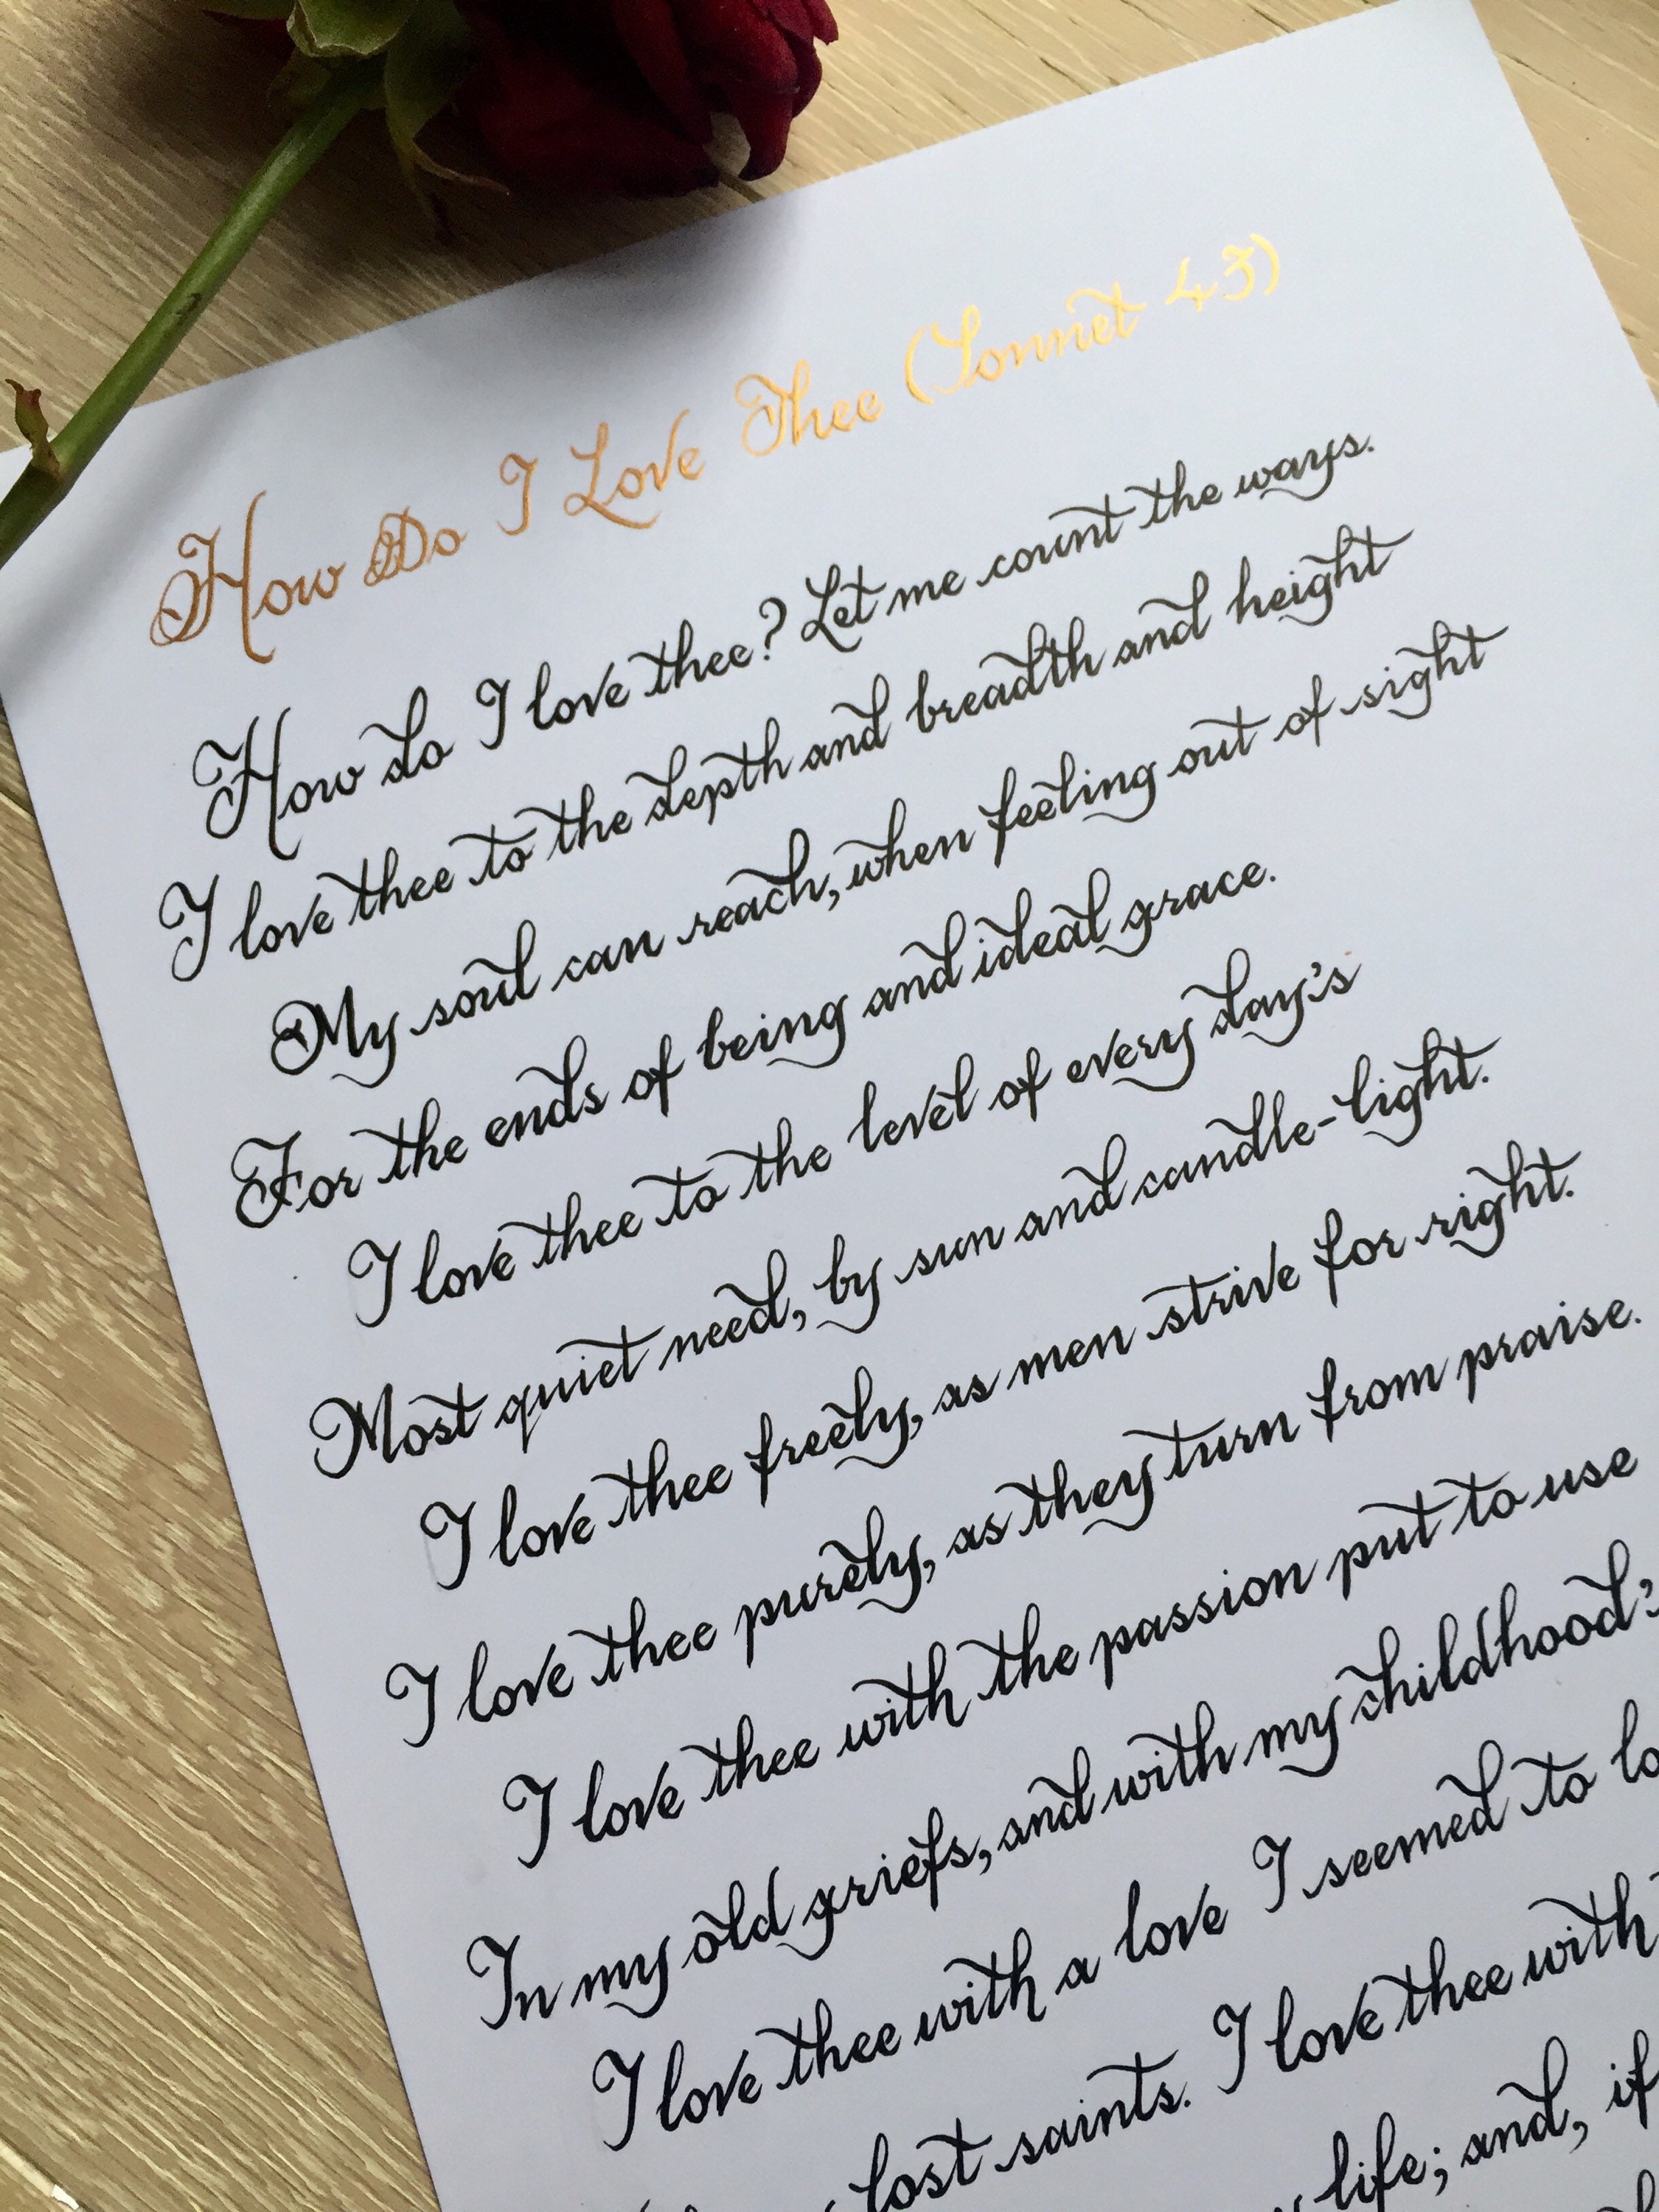 How Do I Love Thee (Sonnet 43)
How do I love thee? Let me count the ways.
I love thee to the depth and breadth and height
My soul can reach, when feeling out of sight
For the ends of being and ideal grace.
I love thee to the level of every day's
Most quiet need, by sun and candle-light.
I love thee freely, as men strive for right.
I love thee purely, as they turn from praise.
I love thee with the passion put to use
In my old griefs, and with my childhood'
I love thee with a love I seemed to lo
lost saints. I love thee with
life; and, if